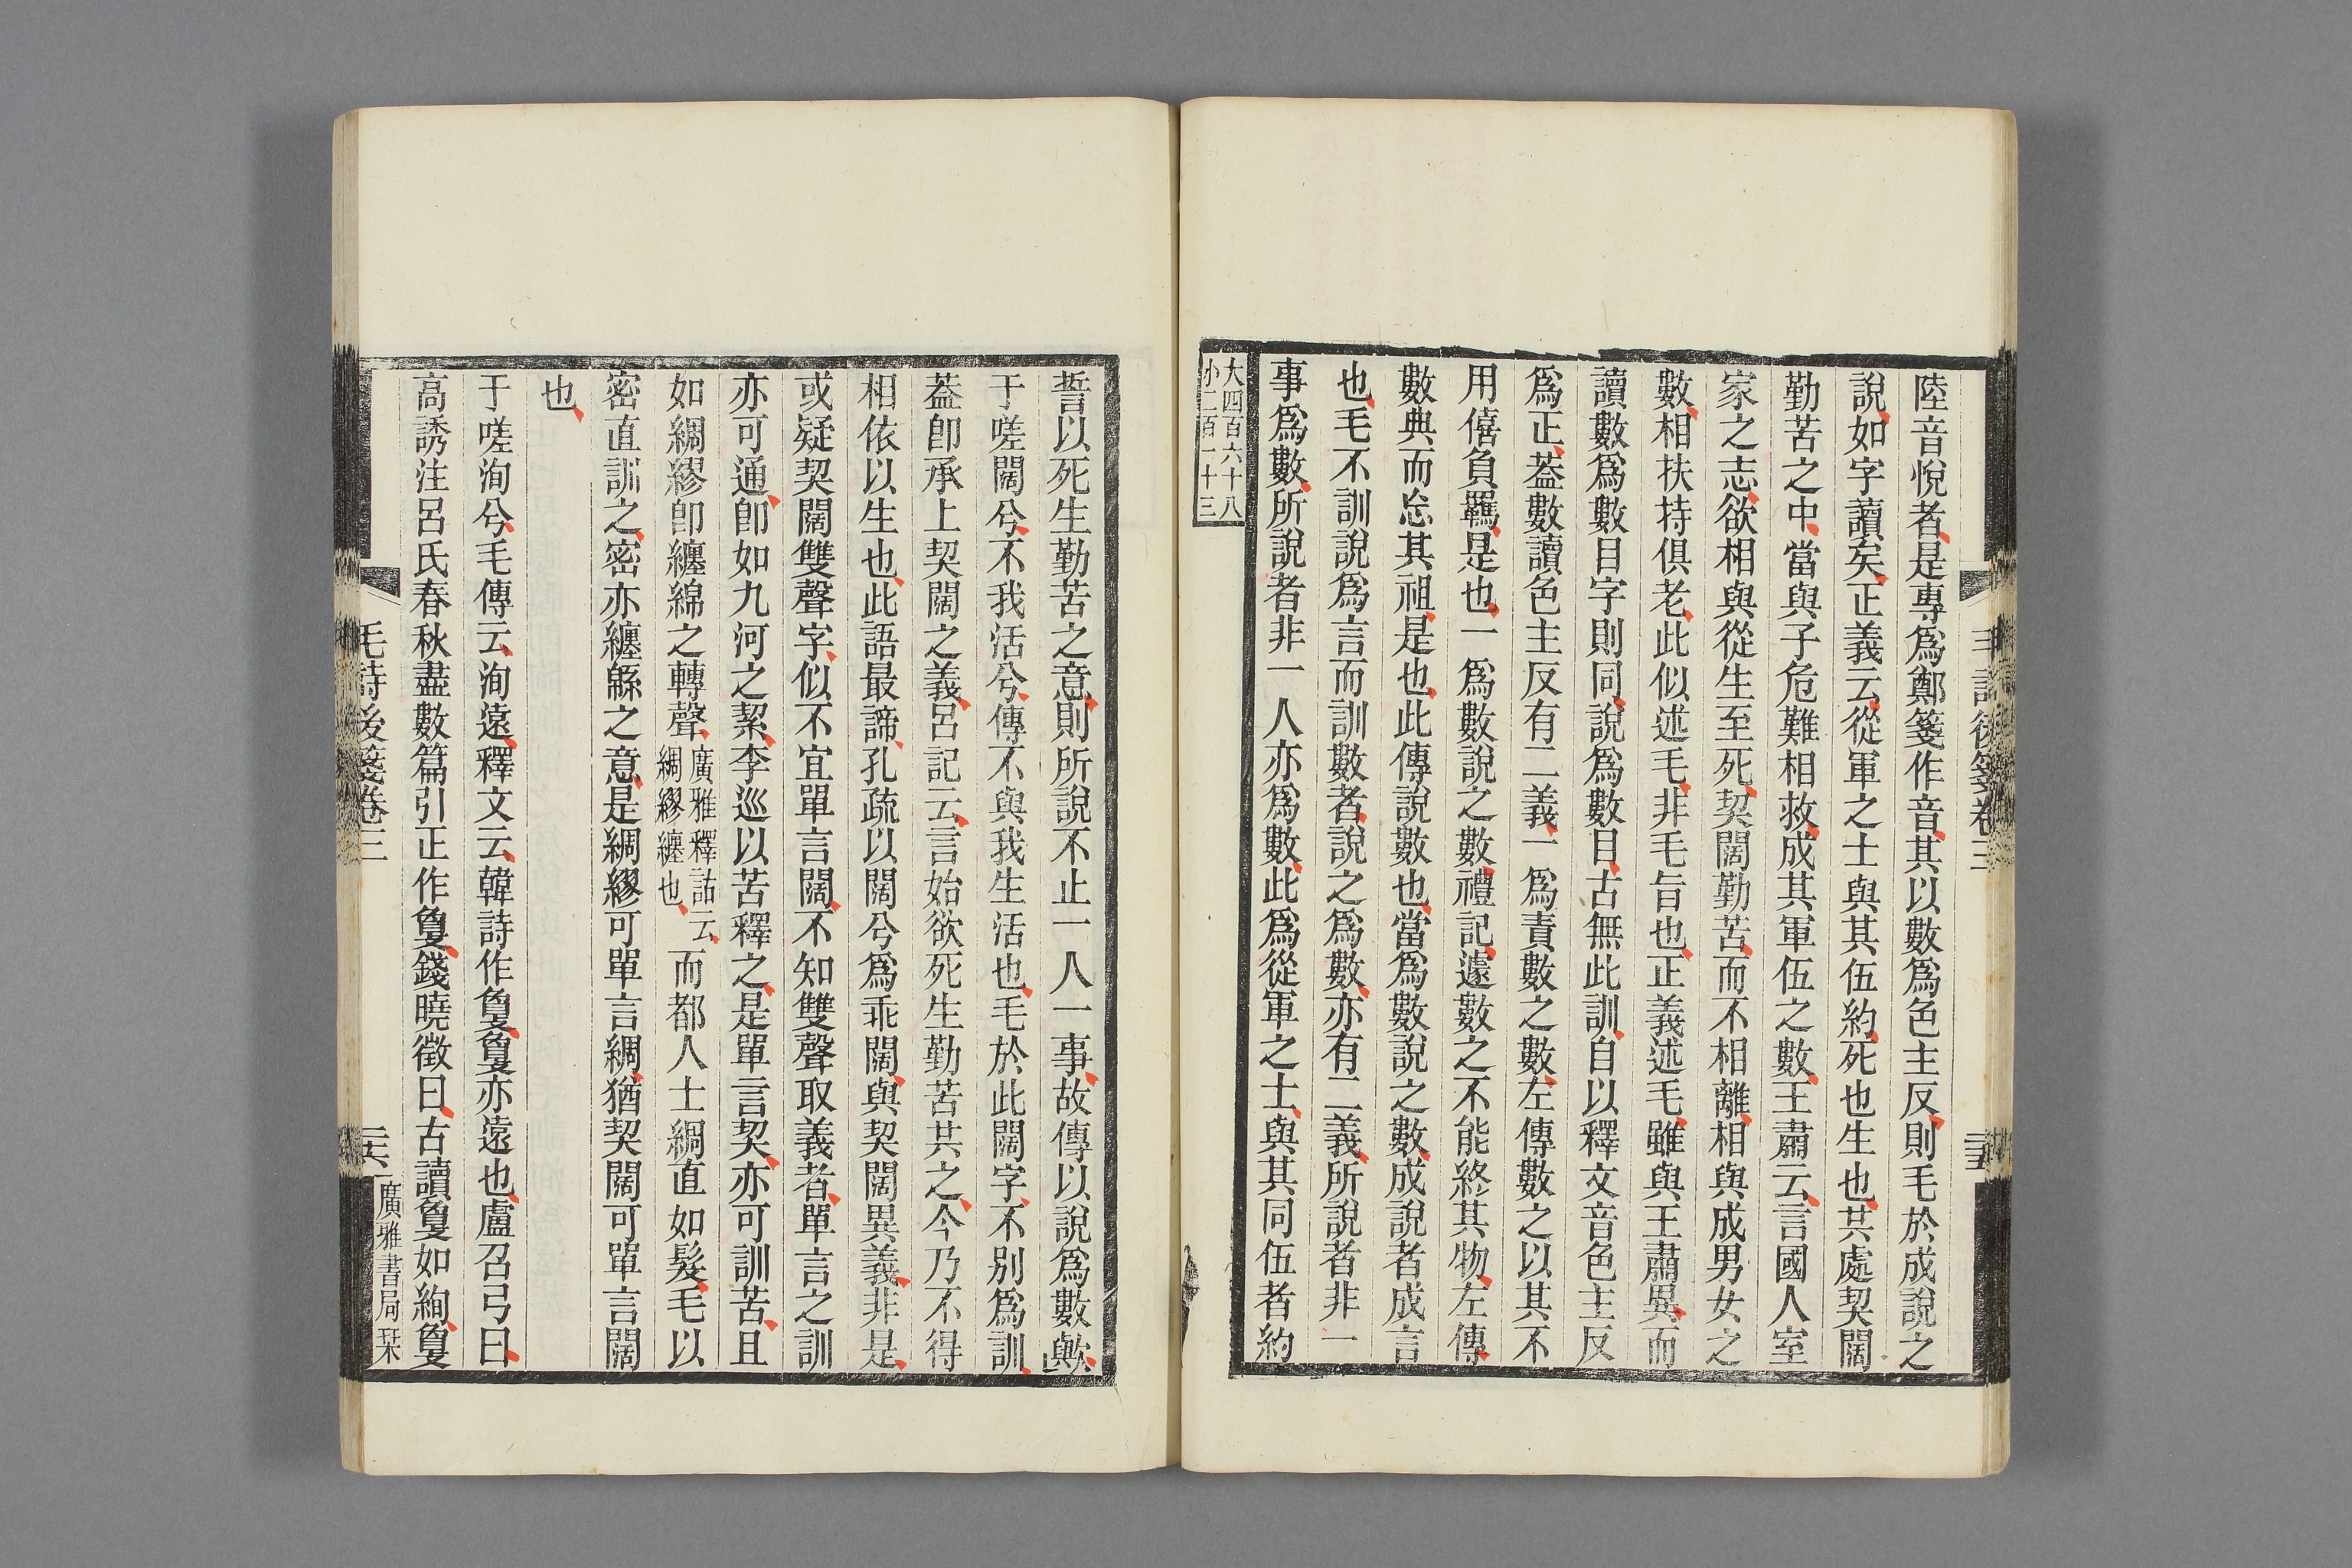 陸音悅者是專爲鄭箋作音其以數爲色主反則毛於成說之
說如字讀矣正義云從軍之士與其伍約死也生也共處契闊
勤苦之中當與子危難相救成其軍伍之數王肅云言國人室
家之志欲相與從生至死契闊勤苦而不相離相與成男女之
數相扶持俱老此似述毛非毛旨也正義述毛雖與王肅異而
讀數爲數目字則同說爲數目古無此訓自以釋文音色主反
爲正葢數讀色主反有二義一爲責數之數左傳數之以其不
用僖負羈是也一爲數說之數禮記遽數之不能終其物左傳
數典而忘其祖是也此傳說數也當爲數說之數成說者成言
也毛不訓說爲言而訓數者說之爲數亦有二義所說者非一
事爲數所說者非一人亦爲數此爲從軍之士與其同伍者約
大四百六十八
小二百一十三
毛詩後箋卷三
誓以死生勤苦之意則所說不止一人一事故傳以說爲數歟
于嗟闊兮不我活兮傳不與我生活也毛於此闊字不別爲訓
葢卽承上契闊之義呂記云言始欲死生勤苦共之今乃不得
相依以生也此語最諦孔疏以闊兮爲乖闊與契闊異義非是
或疑契闊雙聲字似不宜單言闊不知雙聲取義者單言之訓
亦可通卽如九河之絜李巡以苦釋之是單言契亦可訓苦且
如綢繆卽纏綿之轉聲
廣雅釋詁云
綢繆纏也
而都人士綢直如髮毛以
密直訓之密亦纏緜之意是綢繆可單言綢猶契闊可單言闊
也
于嗟洵兮毛傳云洵遠釋文云韓詩作敻敻亦遠也盧召弓曰
高誘注呂氏春秋盡數篇引正作敻錢曉徵曰古讀敻如絢敻
毛詩後箋卷三
二六
廣雅書局栞